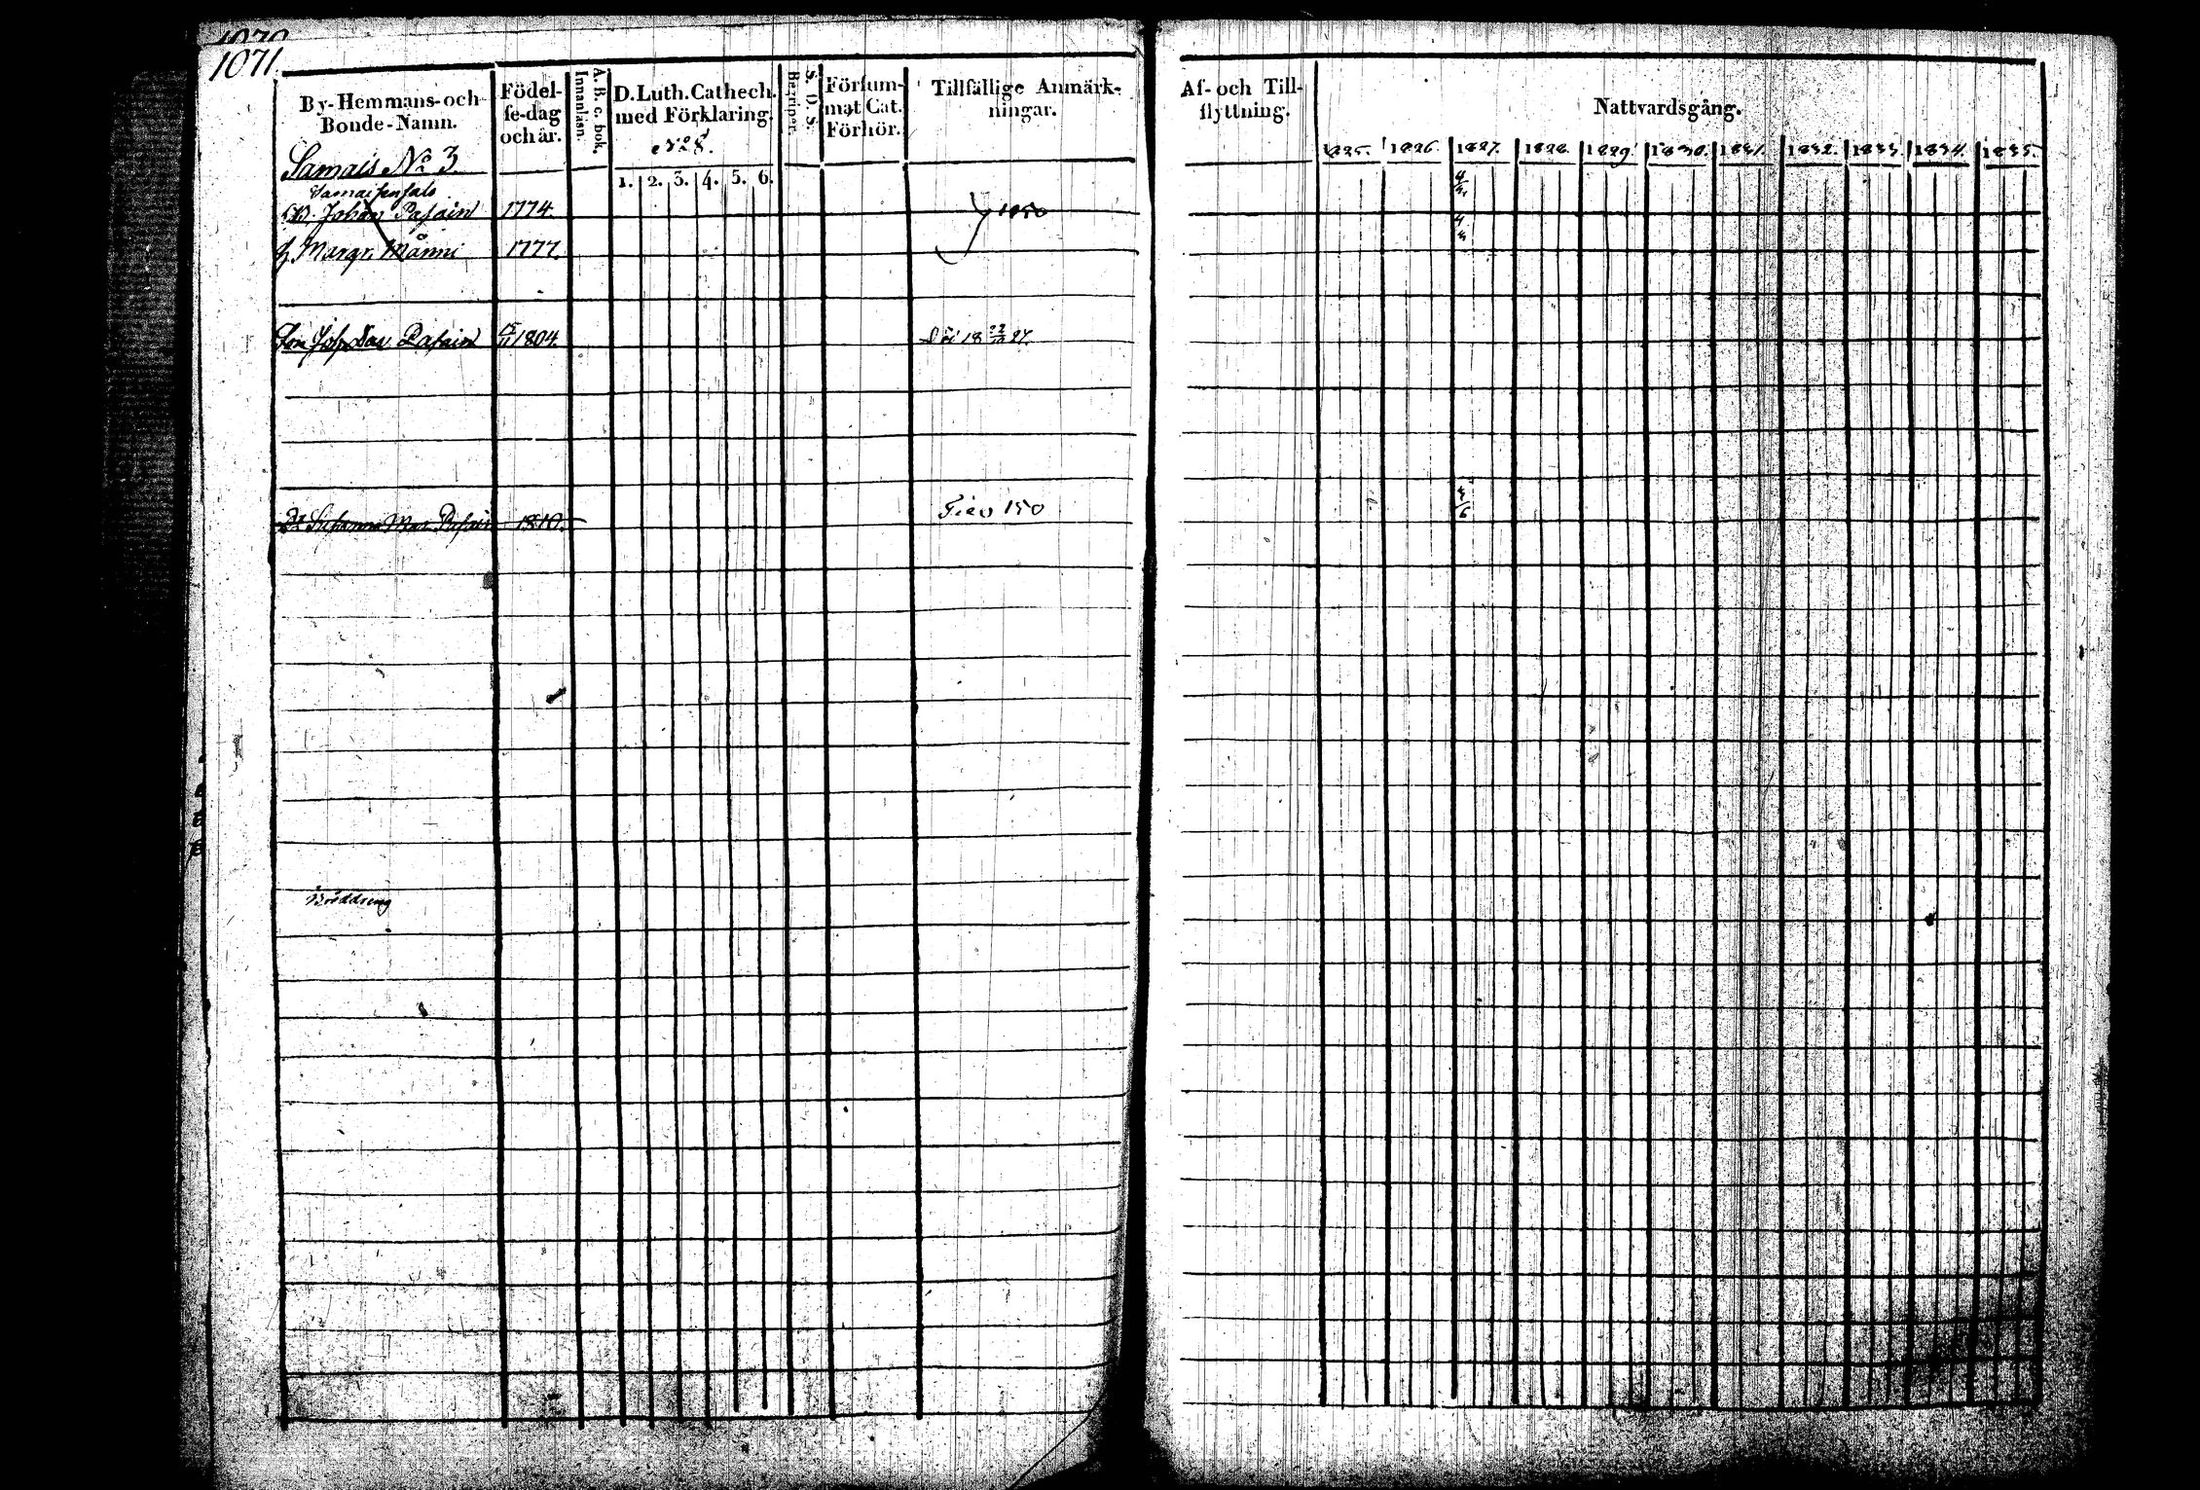 1070
1071.
By-Hemmans-och
Bonde-Namn.
Födel-
se-dag
och år.
A. B. c. bok.
Innanläsn.
D. Luth. Cathech.
med Förklaring.
N:o 28.
1. 2. 3. 4. 5. 6.
S. D. S.
Begriper.
Försum-
mat Cat.
Förhör.
Tillfällige Anmärk-
ningar.
Samais No 3
Johan Pasain 1774.
Margr. Männi 1777.
Son Pasain 15/11 1804. Död 18 22/10 27.
Dr Susanna Mar. Pasain 1810. 150
Bräddreng
Af- och Till-
flyttning.
Nattvardsgång.
1825. 1826. 1827. 1828. 1829. 1830. 1831. 1832. 1833. 1834. 1835.